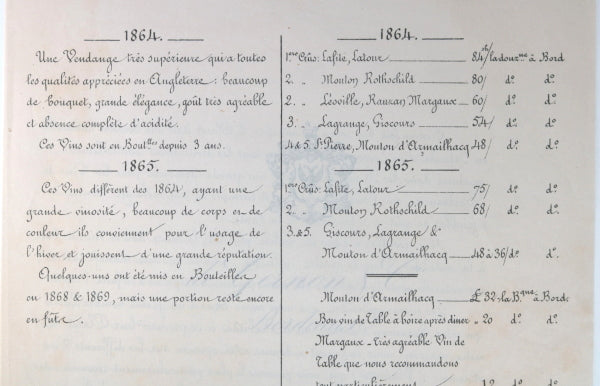 1864.
Une Vendange très supérieure qui a toutes
les qualités appréciées en Angleterre: beaucoup
de bouquet, grande élégance, goût très agréable
et absence complète d'acidité.
Ces Vins sont en Boutlles depuis 3 ans.
1865.
Ces Vins différent des 1864, ayant une
grande vinosité, beaucoup de corps et de
couleur ils conviennent pour l'usage de
l'hiver et jouissent d'une grande réputation.
Quelques-uns ont été mis en Bouteilles
en 1868 & 1869, mais une portion reste encore
en fûts.
1864.
1ers Crûs: Lafite, Latour 84/ la douzne à Bord
2. " Mouton Rothschild 80/ do. do.
2. " Léoville, Rauzan Margaux 60/ do. do.
3. " Lagrange, Giscours 54/ do. do.
4 & 5. St Pierre, Mouton d'Armailhacq 48/ do. do.
1865.
1ers Crûs: Lafite, Latour 75/ do. do.
2. " Mouton Rothschild 68/ do. do.
3 & 5. Giscours, Lagrange &
Mouton d'Armailhacq 48 à 36/ do. do.
Mouton d'Armailhacq £ 32 la Bque à Bord.
Bon vin de Table à boire après dîner " 20 do. do.
Margaux - très agréable Vin de
Table que nous recommandons
tout particulièrement do. do.